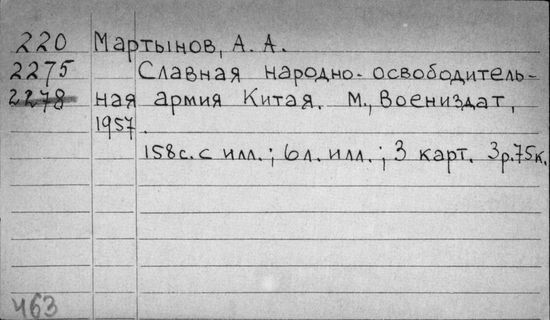 220 Мартынов, А. А.
2275 Славная народно-освободитель-
2278 ная армия Китая. М., Воениздат,
1957.
158с. с илл.; 6л. илл.; 3 карт. 3р.75к.
463